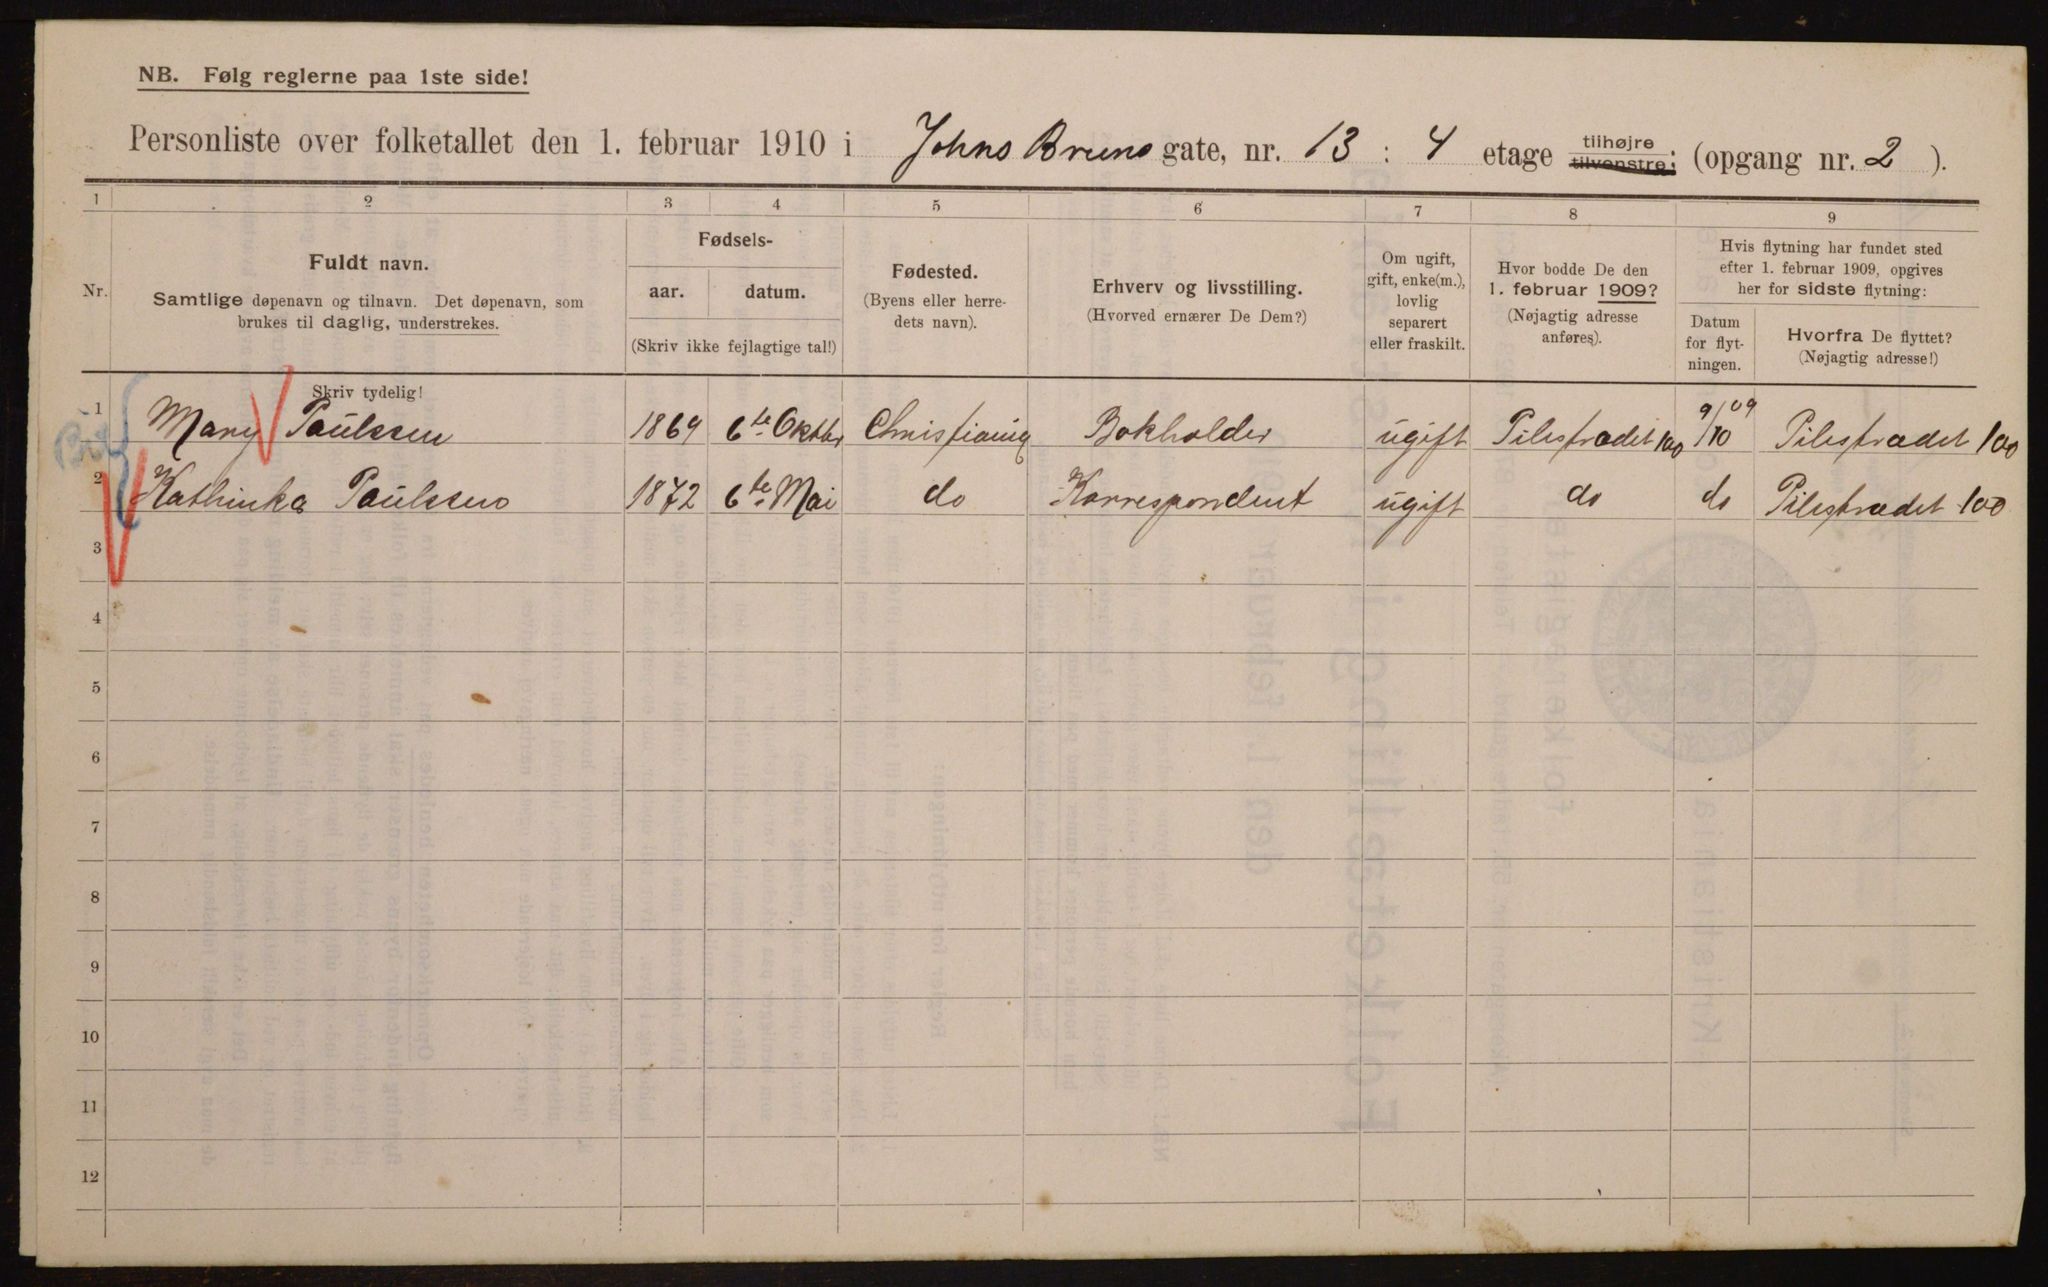 NB. Følg reglerne paa 1ste side!
Personliste over folketallet den 1. februar 1910 i Johns Bruns gate, nr. 13 : 4 etage tilhøjre tilvenstre; (opgang nr. 2 ).
1 2 3 4 5 6 7 8 9
Nr.
Fuldt navn.
Samtlige døpenavn og tilnavn. Det døpenavn, som
brukes til daglig, understrekes.
Skriv tydelig!
Fødsels-
aar. datum.
(Skriv ikke fejlagtige tal!)
Fødested.
(Byens eller herre-
dets navn).
Erhverv og livsstilling.
(Hvorved ernærer De Dem?)
Om ugift,
gift, enke(m.),
lovlig
separert
eller fraskilt.
Hvor bodde De den
1. februar 1909?
(Nøjagtig adresse
anføres).
Hvis flytning har fundet sted
efter 1. februar 1909, opgives
her for sidste flytning:
Datum
for flyt-
ningen.
Hvorfra De flyttet?
(Nøjagtig adresse!)
1 Mary Paulssen 1869 6te Oktbr Christiania Bokholder ugift Pilestrædet 100 9/10 09 Pilestrædet 100
2 Kathinka Paulssen 1872 6te Mai do Korrespondent ugift do do Pilestrædet 100
3
4
5
6
7
8
9
10
11
12